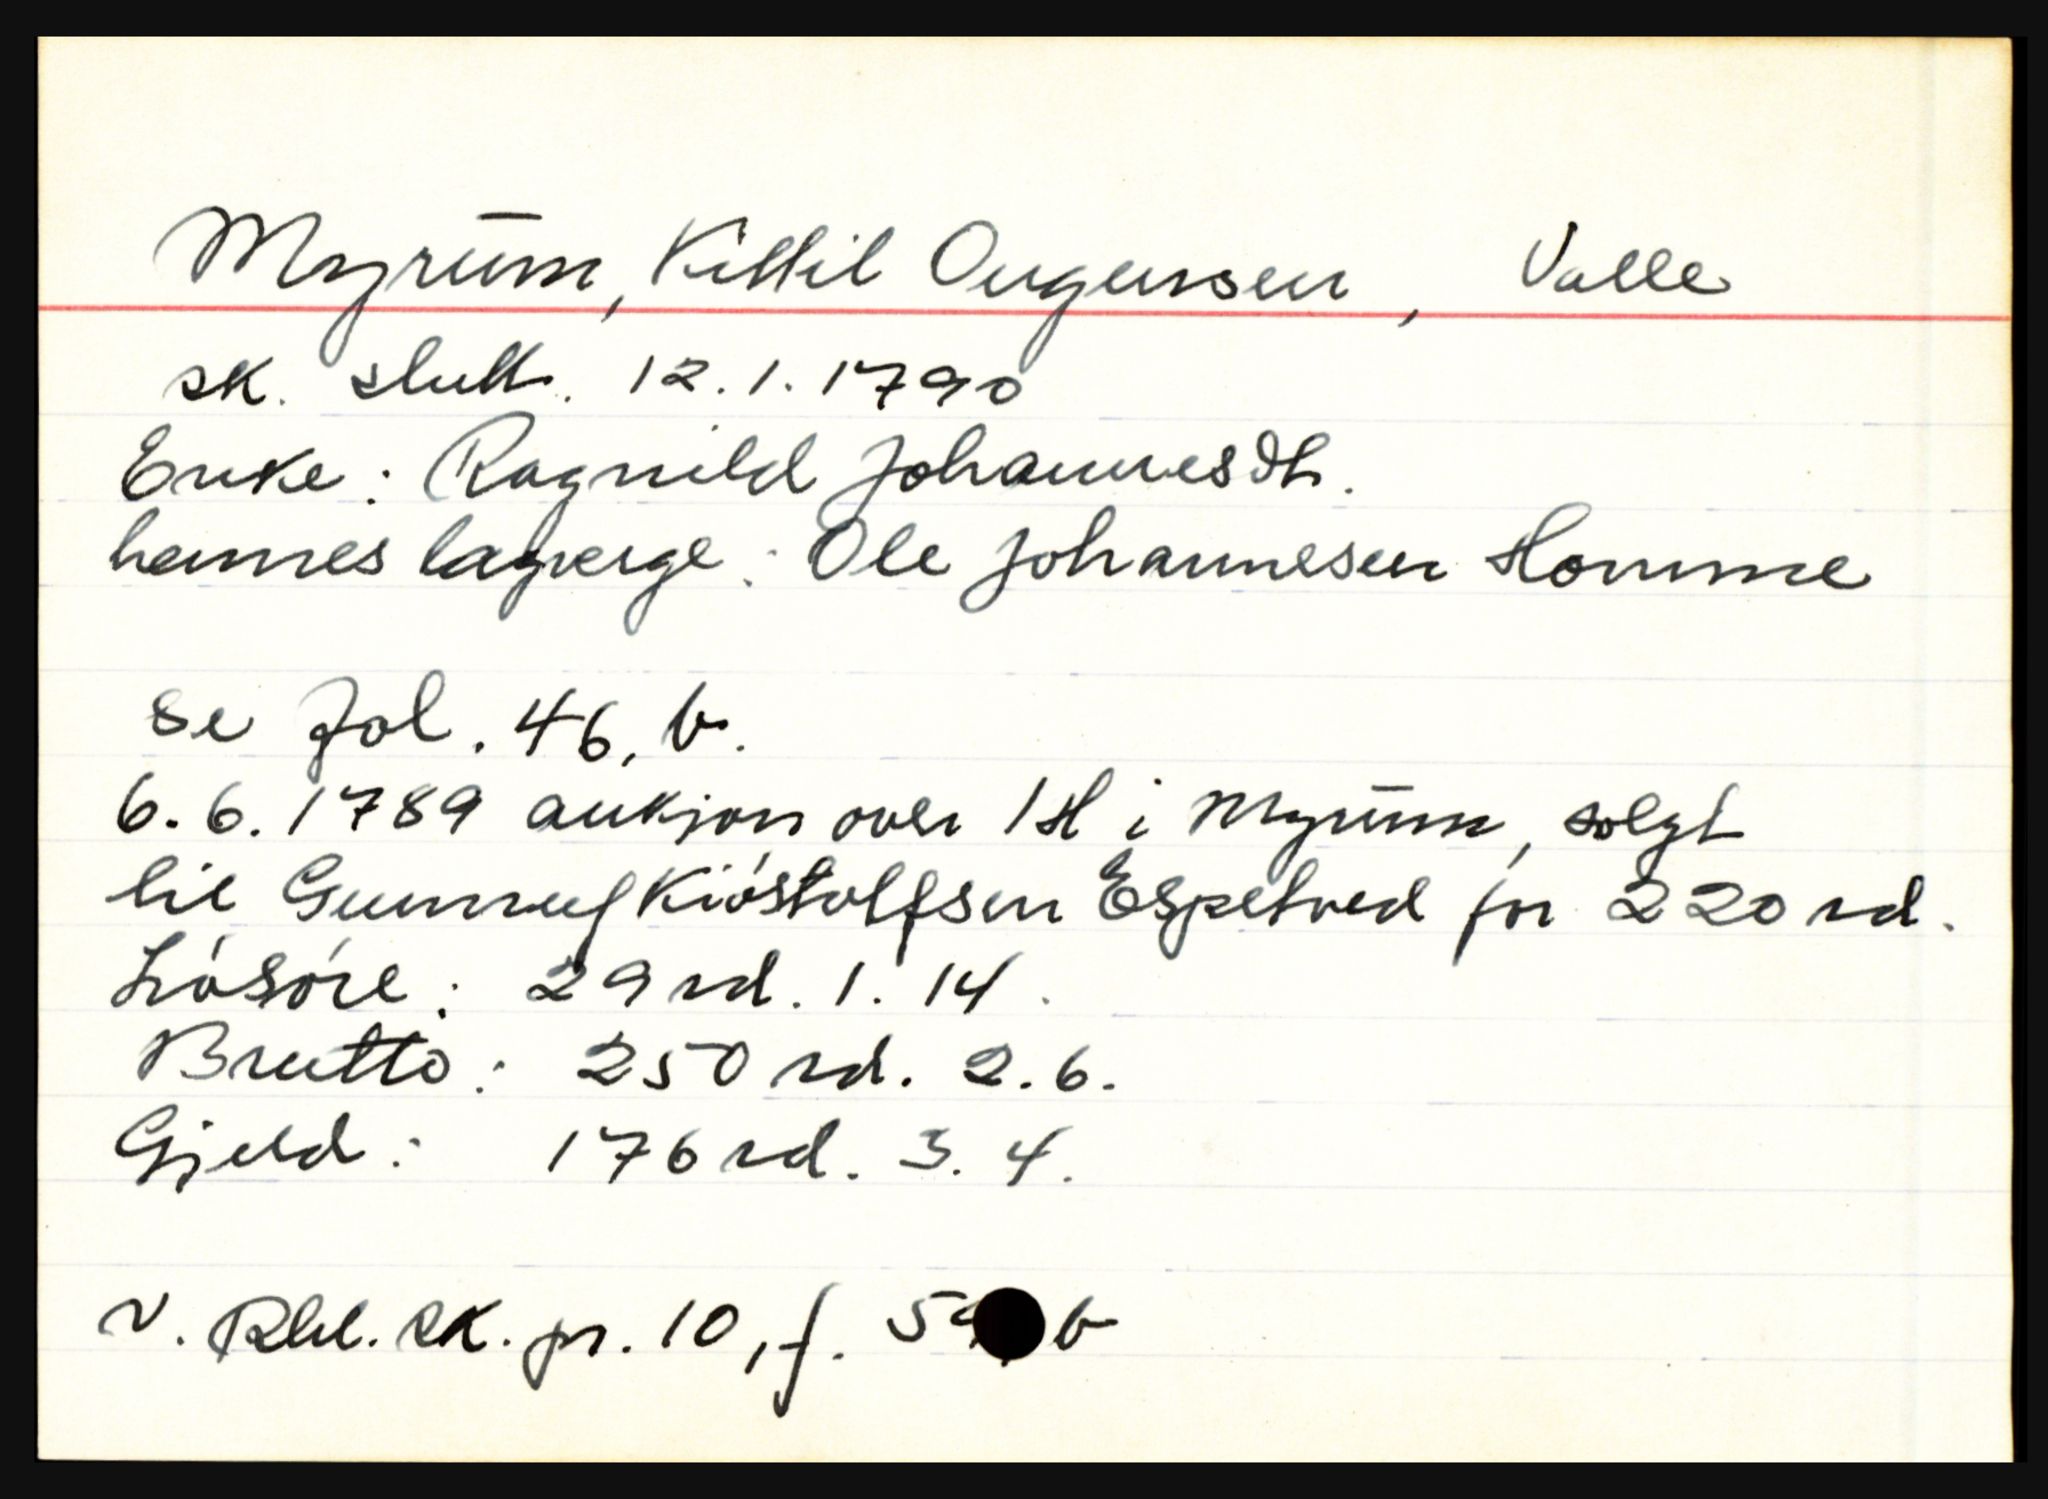 Myrum, Kittil Ougunsen, Valle
sk. slutt. 12.1.1790
Enke: Ragnild Johannesdt.
hennes lagverge: Ole Johannesen Homme
se fol. 46, b.
6.6.1789 auksjon over 1 H i Myrum, solgt
til Gunnuf Kióstolfsen Espetved for 220 rd.
Lósóre: 29 rd. 1. 14.
Brutto: 250 rd. 2. 6.
Gjeld: 176 rd. 3. 4.
V. Rbl. sk. pr. 10, f. b